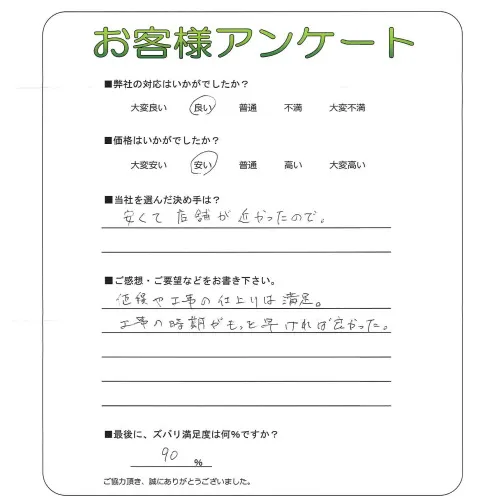 お客様アンケート
■弊社の対応はいかがでしたか？
大変良い 良い 普通 不満 大変不満
■価格はいかがでしたか？
大変安い 安い 普通 高い 大変高い
■当社を選んだ決め手は？
安くて店舗が近かったので。
■ご感想・ご要望などをお書き下さい。
や工事の仕上りは満足。
工事の時期がもっと早ければ良かった。
■最後に、ズバリ満足度は何％ですか？
90 ％
ご協力頂き、誠にありがとうございました。